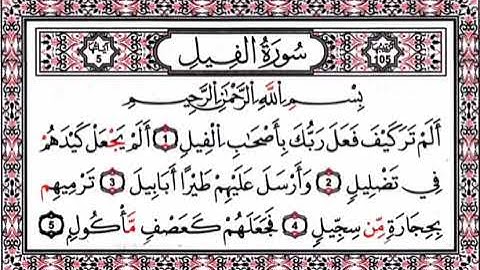 سُورَةُ الْفِيلِ
آيَاتُهَا 5
تَرْتِيبُهَا 105
بِسْمِ اللَّهِ الرَّحْمَٰنِ الرَّحِيمِ
أَلَمْ تَرَ كَيْفَ فَعَلَ رَبُّكَ بِأَصْحَابِ الْفِيلِ 1 أَلَمْ يَجْعَلْ كَيْدَهُمْ
فِي تَضْلِيلٍ 2 وَأَرْسَلَ عَلَيْهِمْ طَيْرًا أَبَابِيلَ 3 تَرْمِيهِم
بِحِجَارَةٍ مِّن سِجِّيلٍ 4 فَجَعَلَهُمْ كَعَصْفٍ مَّأْكُولٍ 5